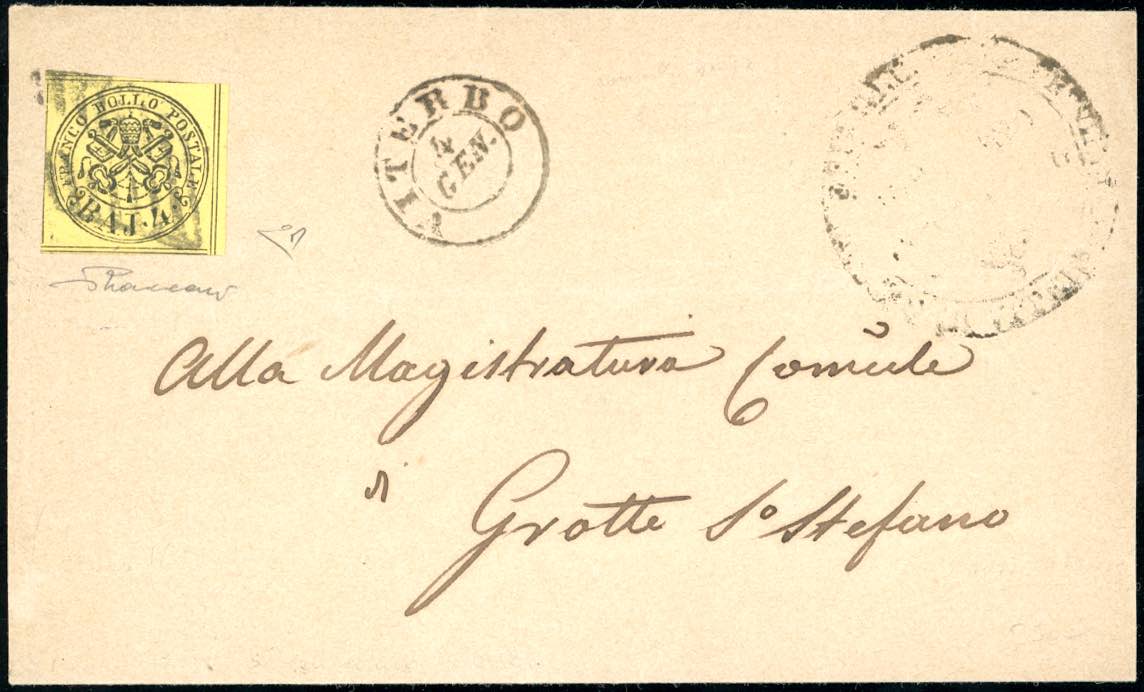 FRANCO BOLLO POSTALE
BAJ. 4
VITERBO
4
GEN.
Alla Magistratura Comūle
di
Grotte S.º Stefano